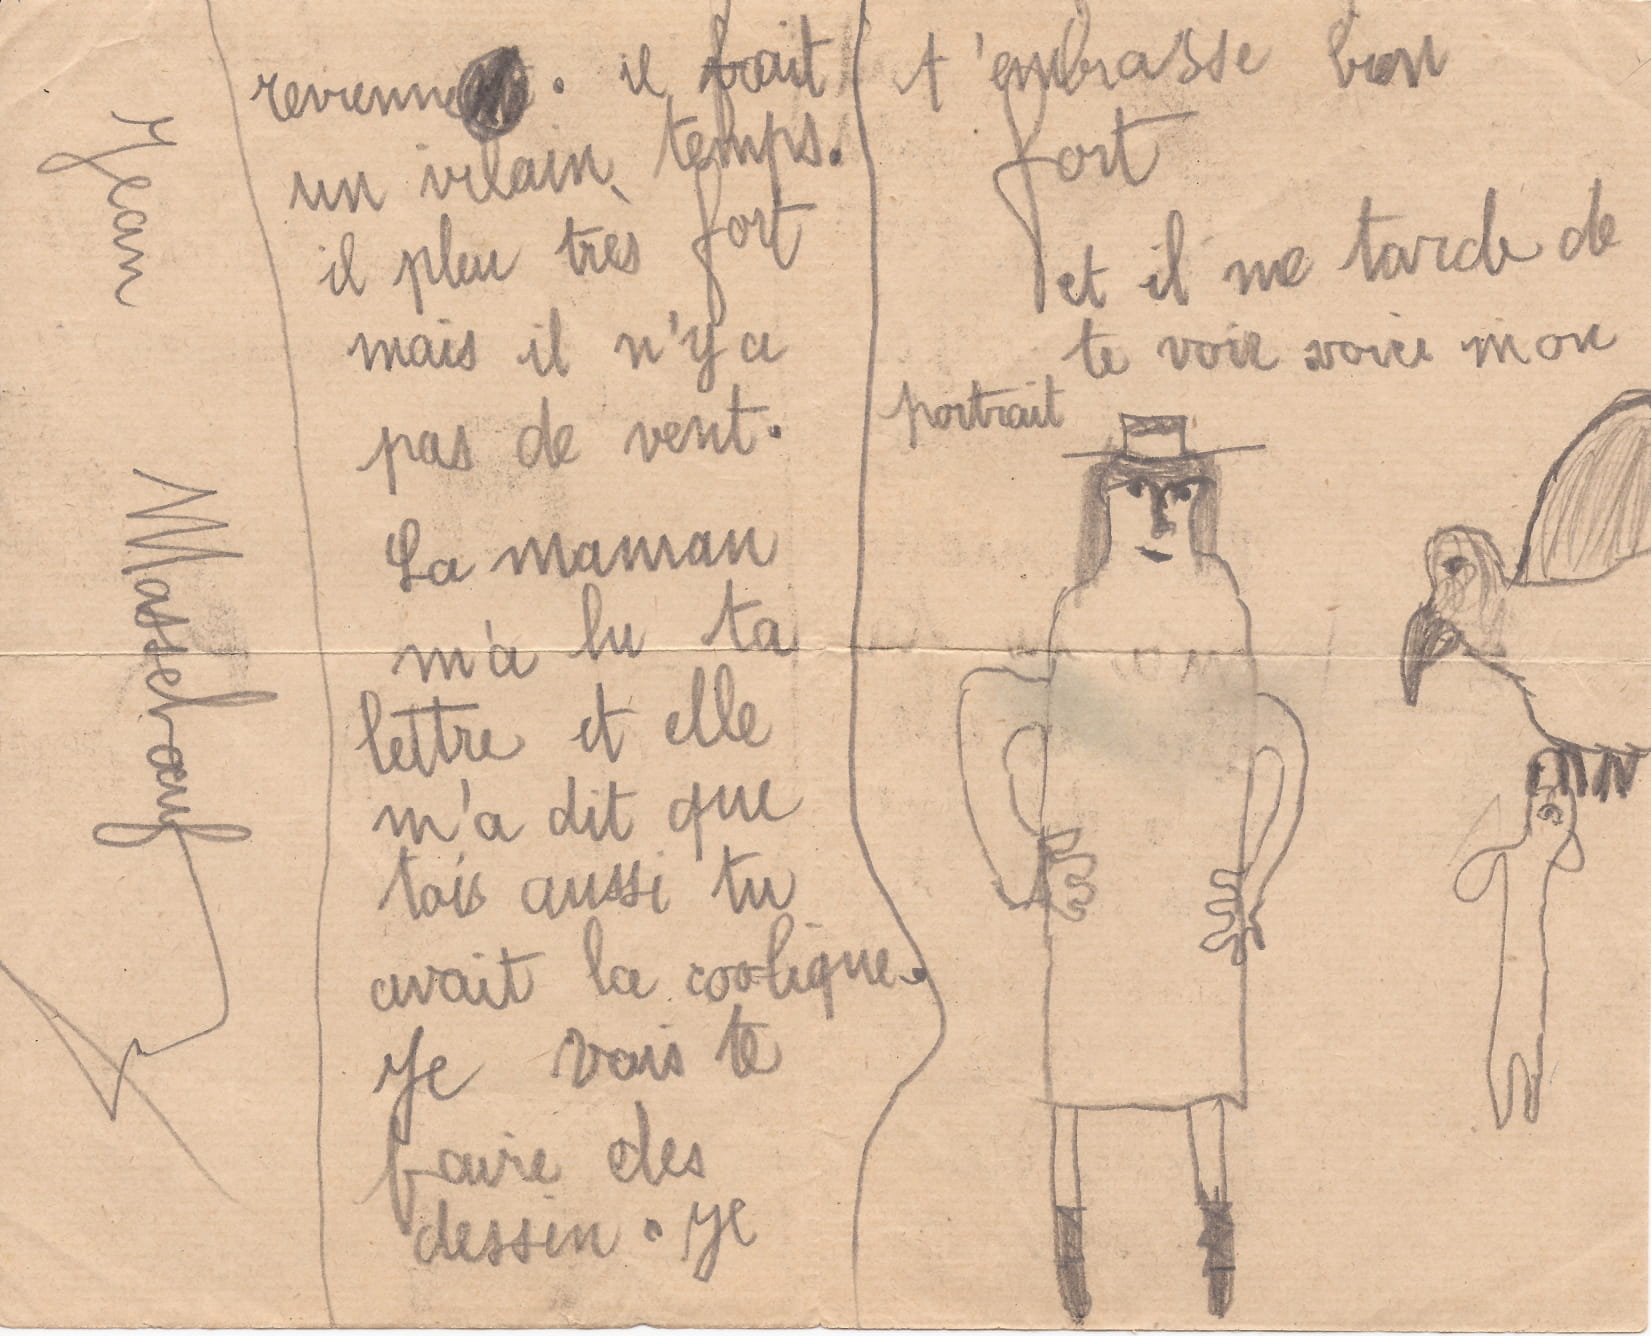 revienne. il fait
un vilain temps.
il pleu très fort
mais il n'y a
pas de vent.
La maman
m'a lu ta
lettre et elle
m'a dit que
tois aussi tu
avait la coolique.
Je vais te
faire des
dessin. Je
t'embrasse bien
fort
et il me tarde de
te voir voici mon
portrait
Jean